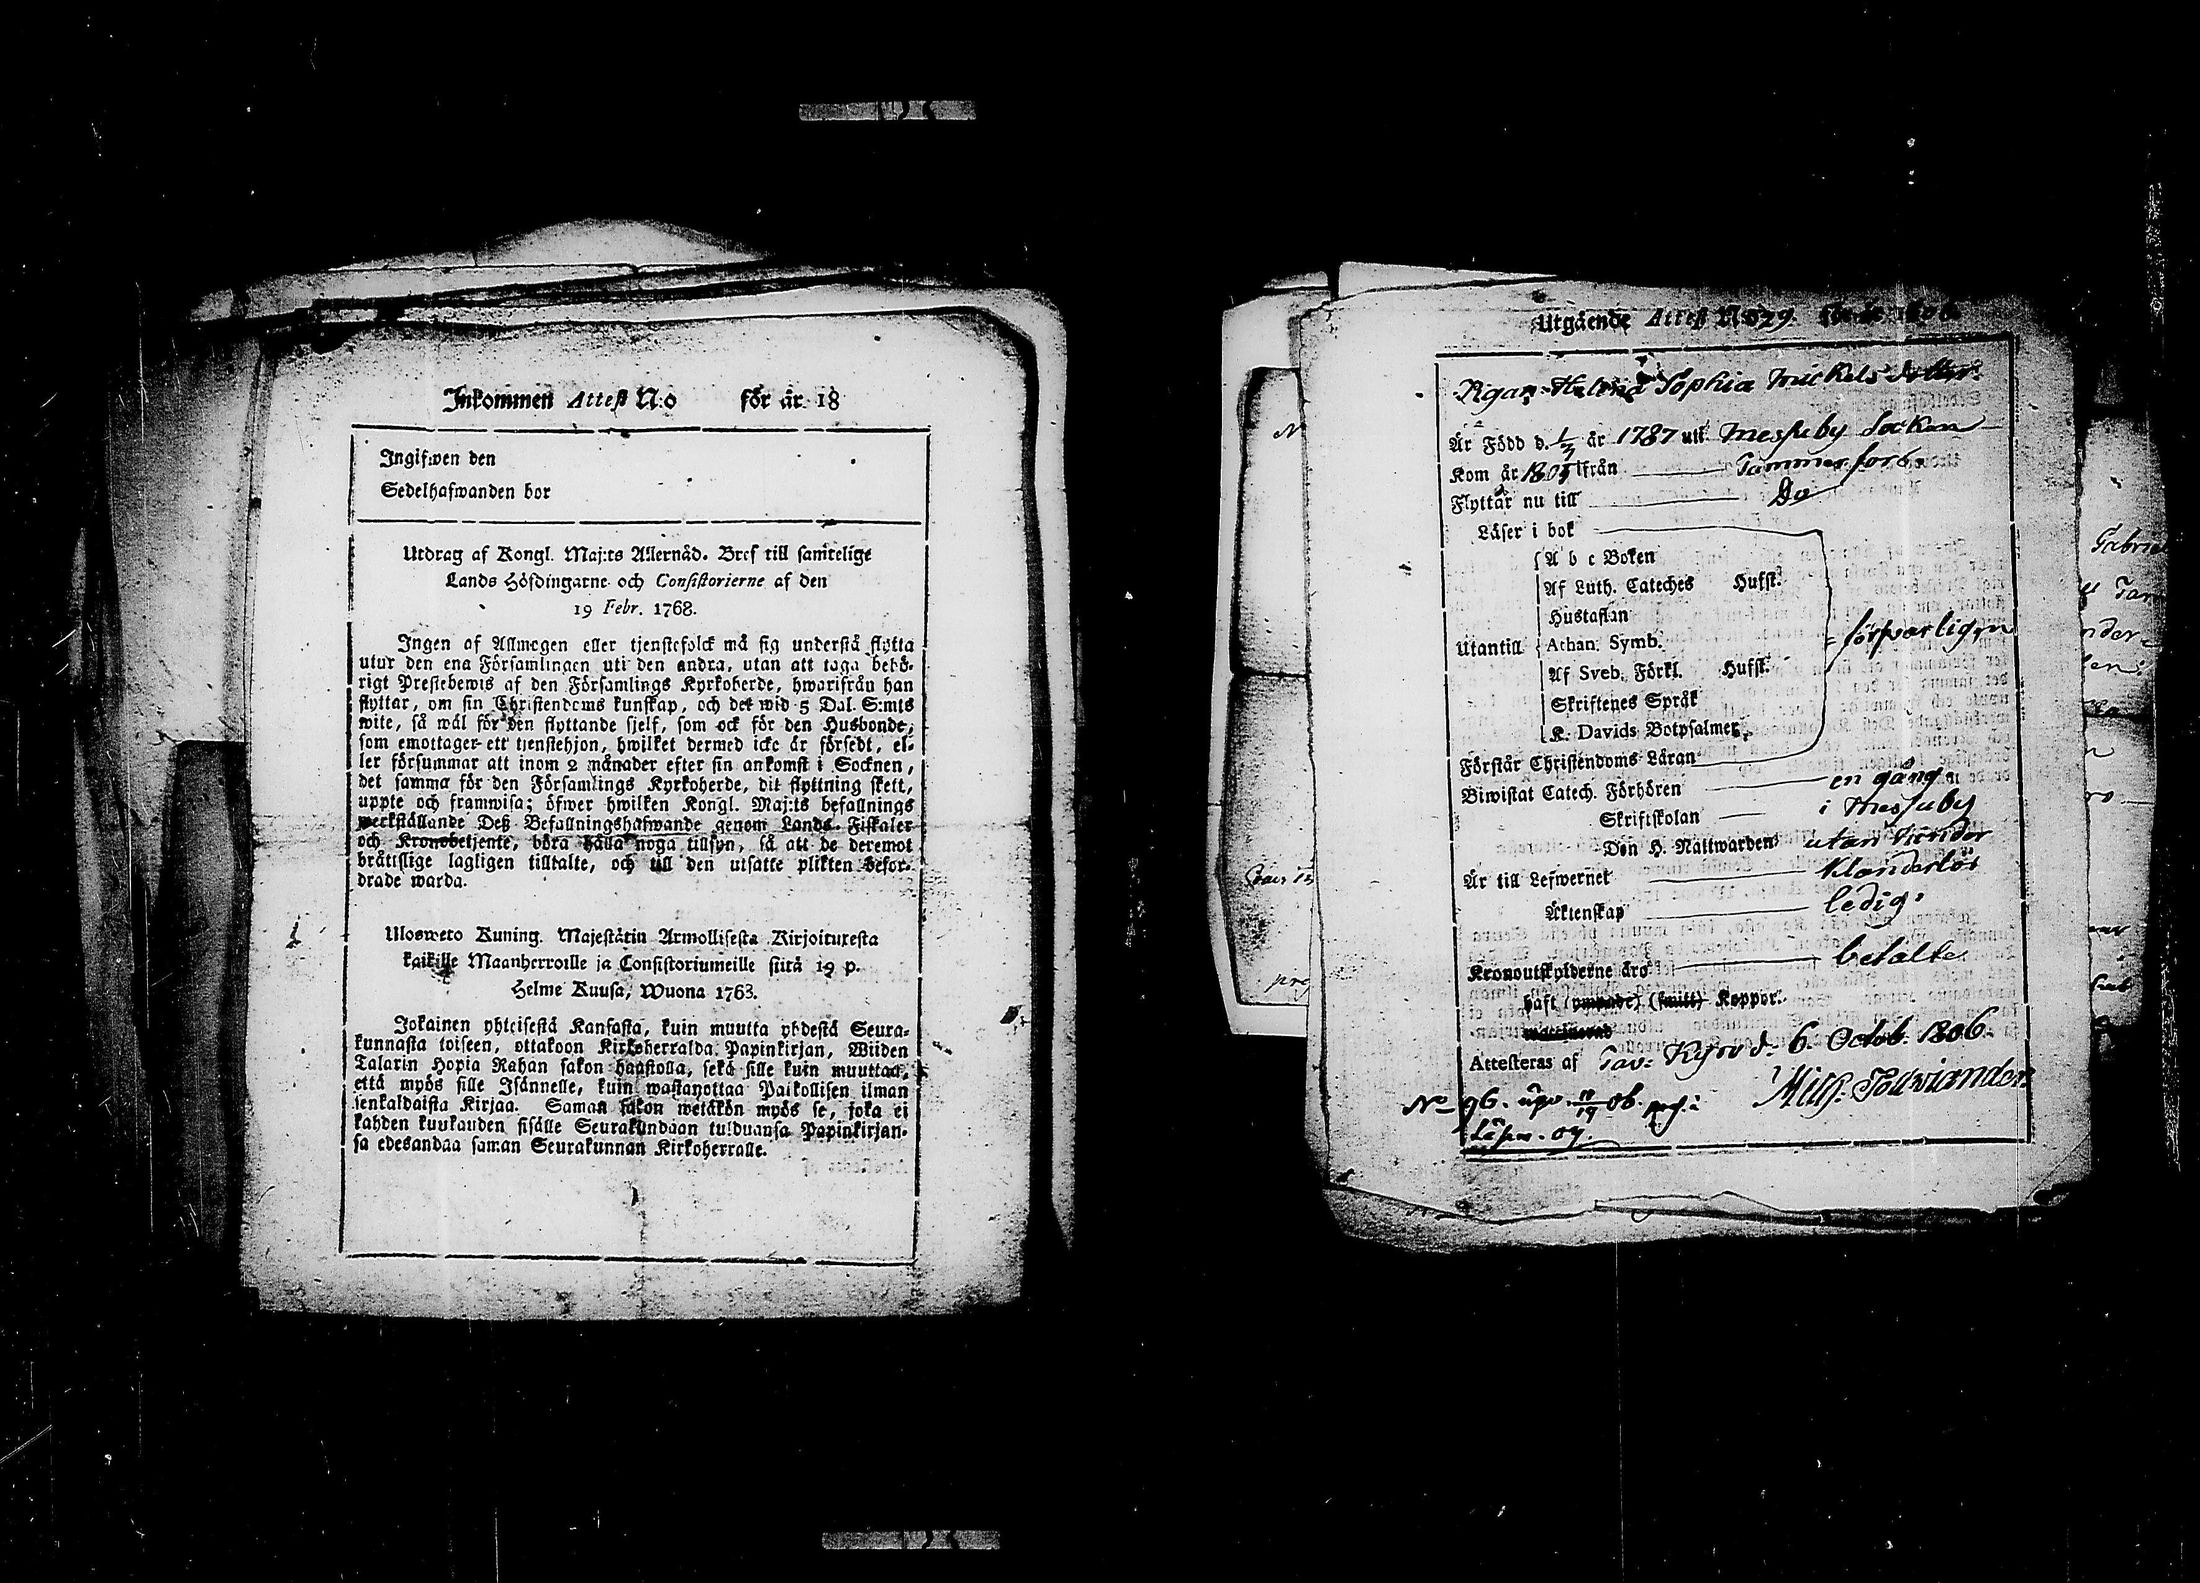 Inkommen Attest N:o för år 18
Ingifwen den
Sedelhafwanden bor
Utdrag af Kongl. Maj:ts Allernåd. Bref till samtelige
Lands Höfdingarne och Consistorierne af den
19 Febr. 1768.
Ingen af Allmogen eller tjenstefolck må sig understå flytta
utur den ena Församlingen uti den andra, utan att taga behö-
rigt Prestebewis af den Församlings Kyrkoherde, hwarifrån han
flyttar, om sin Christendoms kunskap, och det wid 5 Dal. S:mts
wite, så wäl för den flyttande sjelf, som ock för den Husbonde,
som emottager ett tjenstehjon, hwilket dermed icke är försedt, el-
ler försummar att inom 2 månader efter sin ankomst i Socknen,
det samma för den Församlings Kyrkoherde, dit flyttning skett,
uppte och framwisa; öfwer hwilken Kongl. Maj:ts befallnings
werkställande Deß Befallningshafwande genom Lands-Fiskaler
och Kronobetjente, böra hålla noga tillsyn, så att de deremot
bråttslige lagligen tilltalte, och till den utsatte plikten befor-
drade warda.
Ulosweto Kuning. Majestätin Armollisesta Kirjoituxesta
kaikille Maanherroille ja Consistoriumeille siitä 19 p.
Helme Kuusa, Wuona 1768.
Jokainen yhteisestä Kansasta, kuin muutta yhdestä Seura-
kunnasta toiseen, ottakoon Kirkoherralda Papinkirjan, Wiiden
Talarin Hopia Rahan sakon haastolla, sekä sille kuin muuttaa,
että myös sille Isännelle, kuin wastanottaa Paikollisen ilman
senkaldaista Kirjaa. Saman sakon wetäkön myös se, joka ei
kahden kuukauden sisälle Seurakundaan tulduansa Papinkirjan-
sa edesandaa saman Seurakunnan Kirkoherralle.
Utgående Attest N:o 29
Pigan Helena Sophia Mickels dotter
Är Född d. 1/7 år 1787 uti Messuby Socken
Kom år ifrån Tammerfors
Flyttar nu till Do
Läser i bok
A b c Boken
Af Luth. Cateches Hufst.
Hustaflan
Utantill Athan. Symb. försvarligen
Af Sveb. Förkl. Hufst.
Skriftenes Språk
K. Davids Botpsalmer
Förstår Christendoms Läran
Biwistat Catech. Förhören en gång
Skriftskolan i Messuby
Den H. Nattwarden utan hinder
Är till Lefwernet klanderlös
Äktenskap ledig
Kronoutskylderne äro betalte
haft (ympade) Koppor.
Attesteras af Tav: Kyro d. 6. Octob. 1806.
N:o 96.